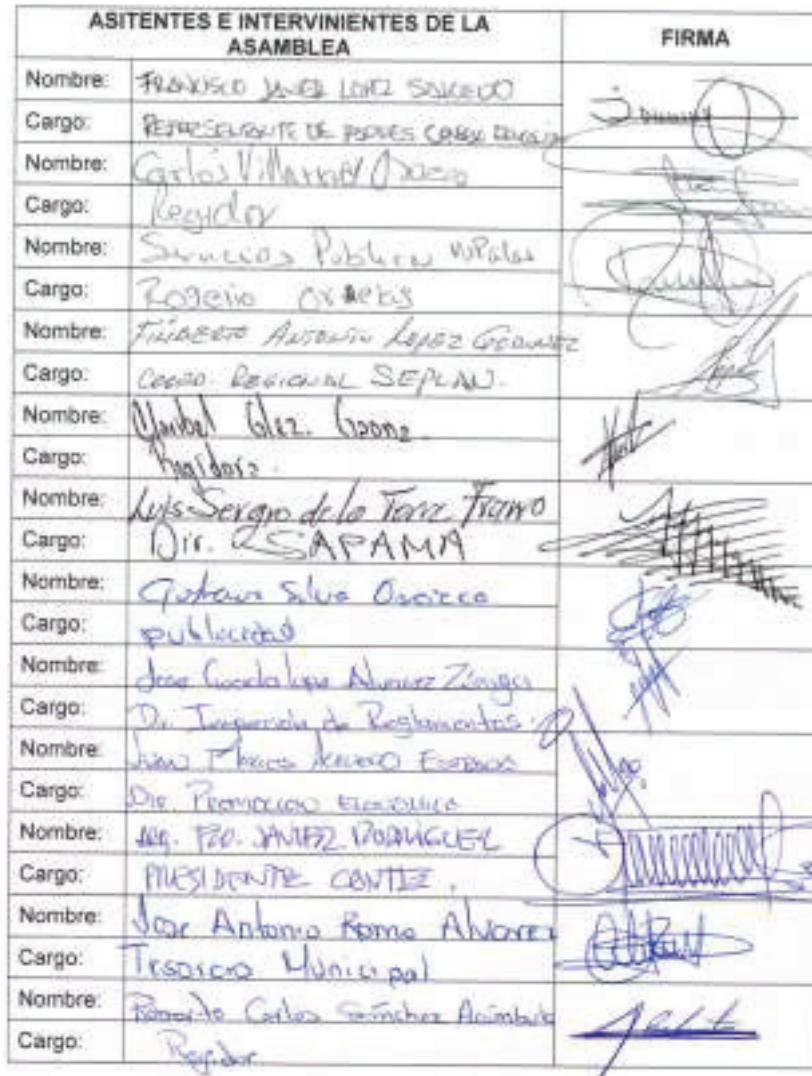 ASITENTES E INTERVINIENTES DE LA ASAMBLEA
FIRMA
Nombre: FRANCISCO JAVIER LOPEZ SALCEDO
Cargo: REPRESENTANTE DE PADRES
Nombre: Carlos Villarreal
Cargo: Regidor
Nombre: Servicios Publicos
Cargo: Rogelio ornelas
Nombre: FILIBERTO ANTONIO LOPEZ
Cargo: COORD. REGIONAL SEPLAN.
Nombre: Maribel Glez. Gaona.
Cargo: Regidora.
Nombre: Luis Sergio de la Torre
Cargo: Dir. SAPAMA
Nombre: Gustavo Silva
Cargo: publicidad
Nombre: Jose Guadalupe Alvarez Zúñiga
Cargo: Dir. de Reglamentos.
Nombre: Juan
Cargo: Dir. PROMOCION ECONOMICA
Nombre: FCO. JAVIER RODRIGUEZ
Cargo: PRESIDENTE
Nombre: Jose Antonio Romo Alvarez
Cargo: Tesorero Municipal
Nombre: Carlos Sánchez
Cargo: Regidor